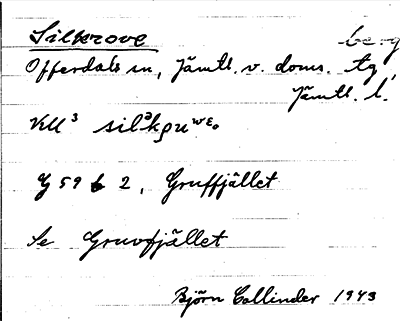 Silkrove berg
Offerdals sn, Jämtl. v. doms. tg,
Jämtl. l.
G 59 b 2, Gruffjället
Se Gruvfjället
Björn Collinder 1943